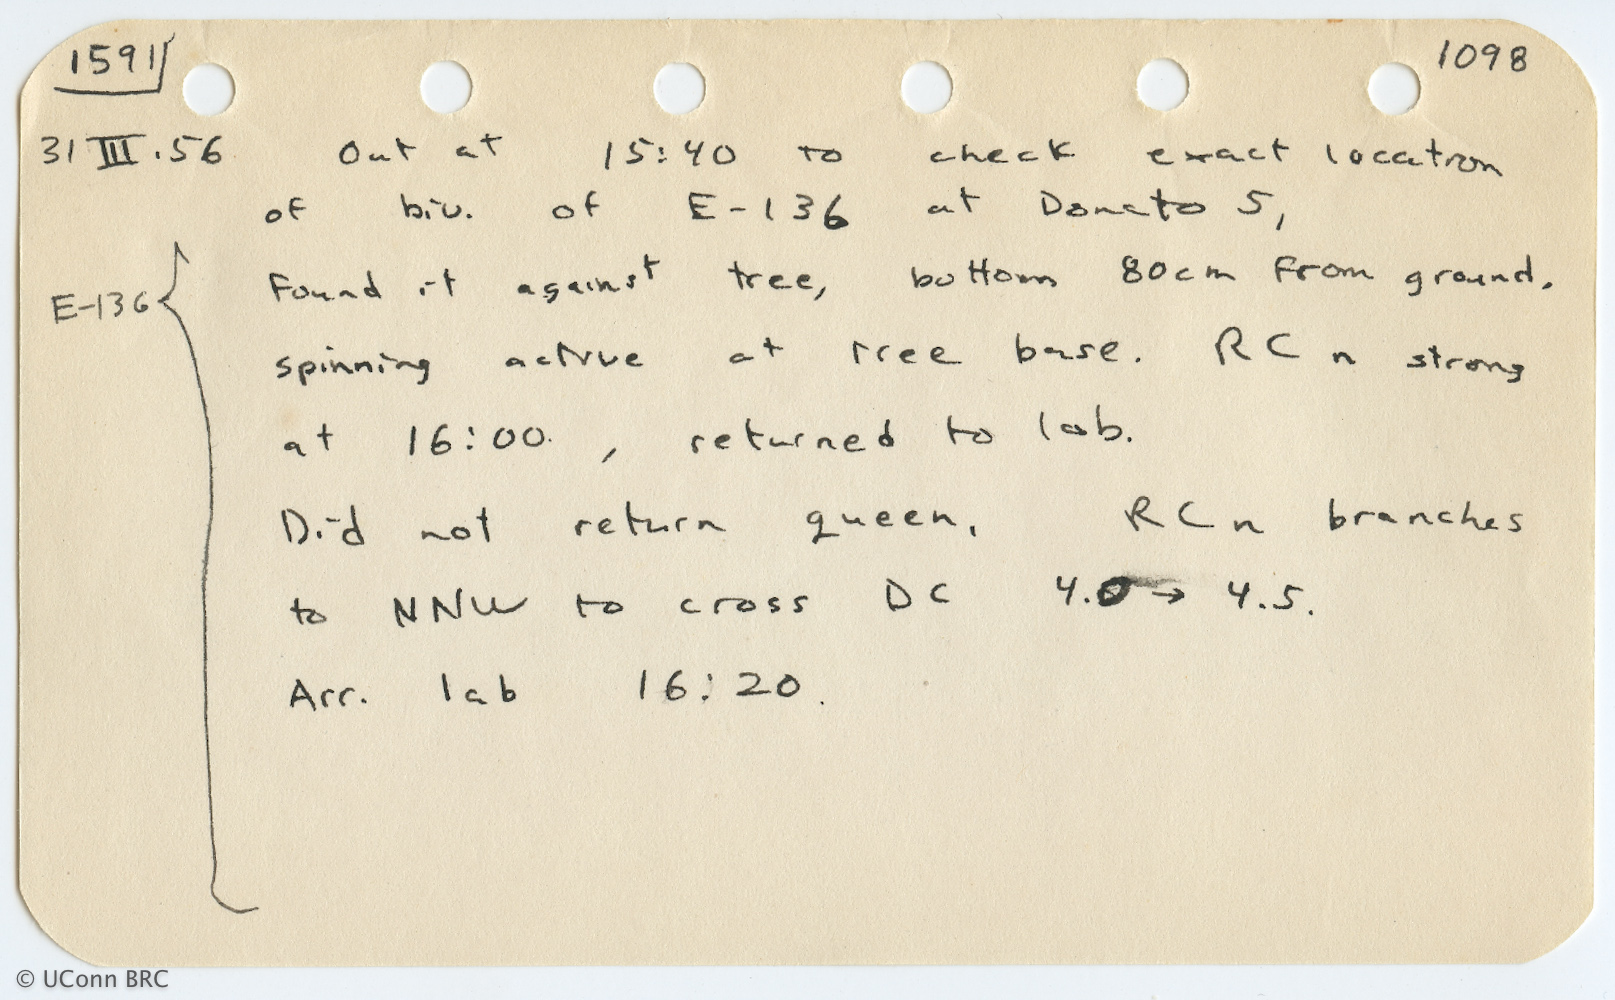 1591
1098
31 III.56 Out at 15:40 to check exact location
of biv. of E-136 at Donato 5,
E-136
Found it against tree, bottom 80cm from ground.
spinning active at tree base. RCn strong
at 16:00 , returned to lab.
Did not return queen. RCn branches
to NNW to cross DC 4.0 → 4.5.
Arr. lab 16:20.
© UConn BRC